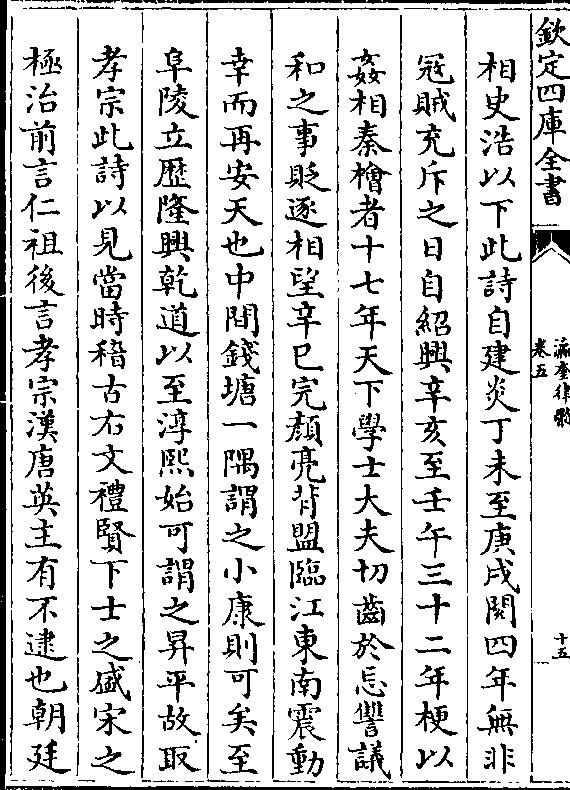 欽定四庫全書
瀛奎律髓
卷五
十五
相史浩以下此詩自建炎丁未至庚戌閱四年無非
冦賊充斥之日自紹興辛亥至壬午三十二年梗以
姦相秦檜者十七年天下學士大夫切齒於忘讐議
和之事貶逐相望辛巳完顔亮背盟臨江東南震動
幸而再安天也中間錢塘一隅謂之小康則可矣至
阜陵立歴隆興乾道以至淳熙始可謂之昇平故取
孝宗此詩以見當時稽古右文禮賢下士之盛宋之
極治前言仁祖後言孝宗漢唐英主有不逮也朝廷